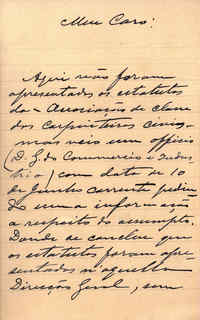 Meu Caro:
Aqui não foram
apresentados os estatutos
da Associação de classe
dos Carpinteiros civis,
mas veio um officio
(D. G. do Commercio e Indus
tria) com data de 10
de Junho corrente pedin
do uma informação
a respeito do assumpto.
Donde se conclue que
os estatutos foram apre
sentados n'aquella
Direcção Geral, sem